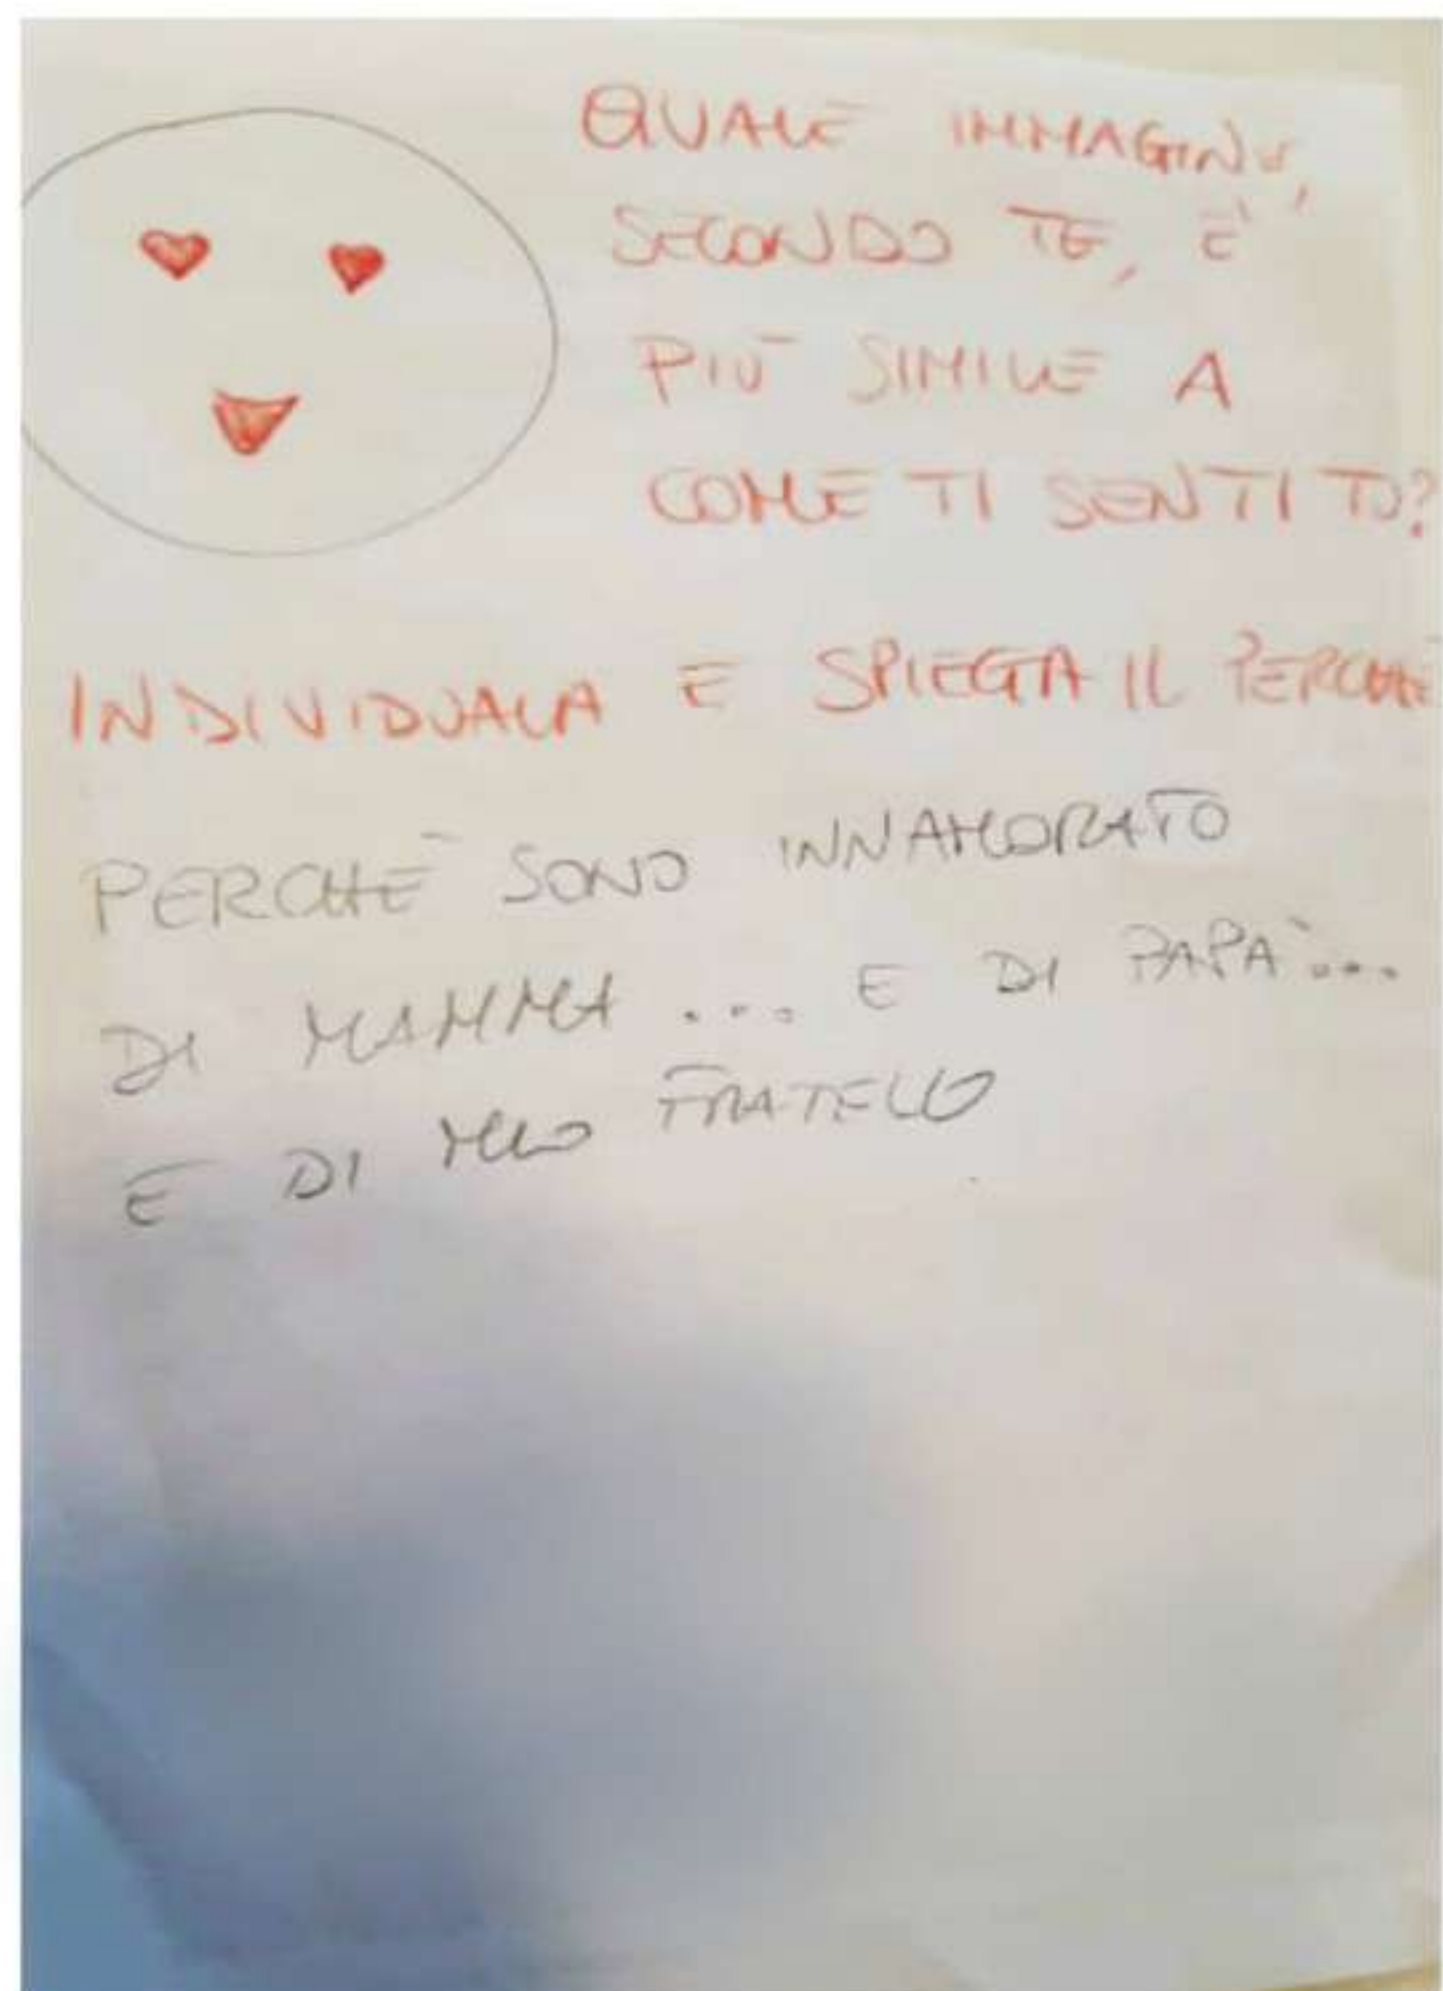 QUALE IMMAGINE,
SECONDO TE, È
PIÙ SIMILE A
COME TI SENTI TU?
INDIVIDUALA E SPIEGA IL PERCHÈ
PERCHÈ SONO INNAMORATO
DI MAMMA .... E DI PAPÀ ...
E DI MIO FRATELLO